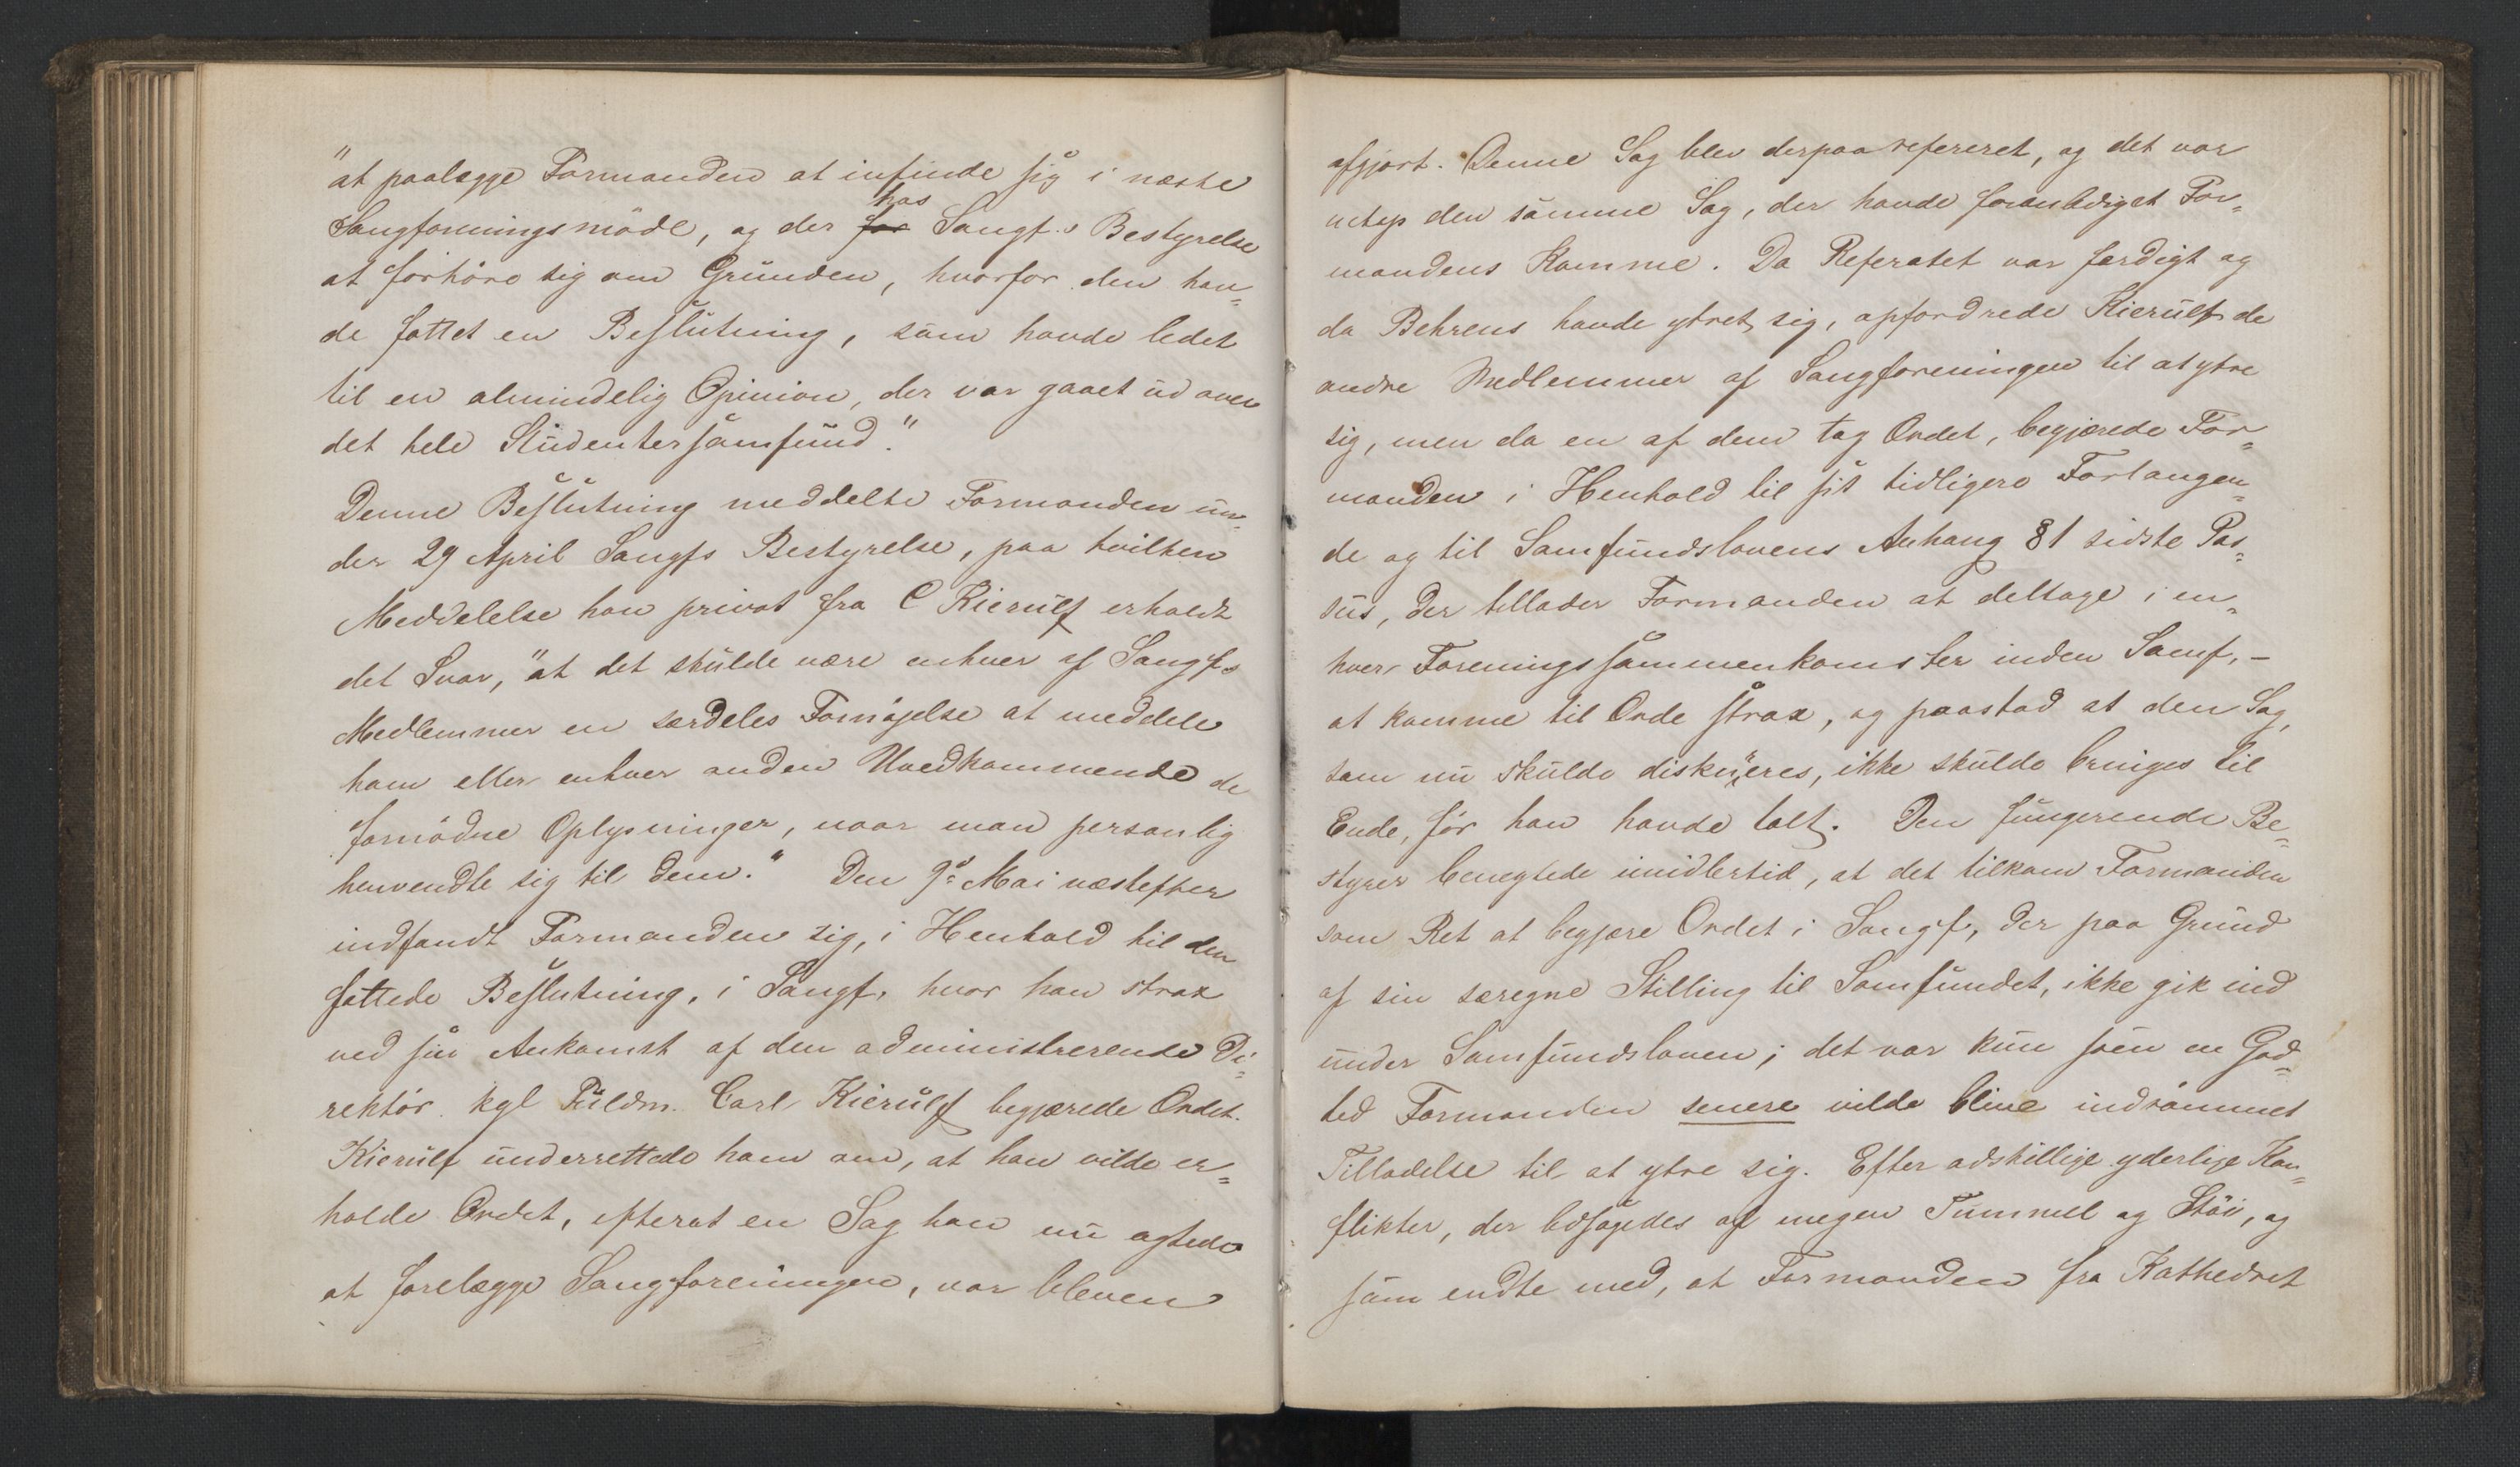 "at paalægge Formanden at infinde sig i næste
Sangforeningsmöde, og der for hos Sangf.s Bestyrelse
at forhöre sig om Grunden, hvorfor den hav=
de fattet en Beslutning, som havde ledet
til en almindelig Opinion, der var gaaet ud over
det hele Studentersamfund."
Denne Beslutning meddelte Formanden un=
der 29 April Sangfs Bestyrelse, paa hvilken
Meddelelse han privat fra C Kierulf erholdt
det Svar, "at det skulde være enhver af Sangfs
Medlemmer en særdeles Fornöjelse at meddele
ham eller enhver anden Uvedkommende de
fornödne Oplysninger, naar man personlig
henvendte sig til dem." Den 9de Mai næstefter
indfandt Formanden sig, i Henhold til den
fattede Beslutning, i Sangf, hvor han strax
ved sin Ankomst af den administrerende Di=
rektör kgl Fuldm. Carl Kierulf begjærede Ordet.
Kierulf underrettede ham om, at han vilde er=
holde Ordet, efterat en Sag han nu agtede
at forelægge Sangforeningen, var bleven
afgjort. Denne Sag blev derpaa refereret, og det var
netop den samme Sag, der havde foranlediget For=
mandens Komme. Da Referatet var færdigt og
da Behrens havde ytret sig, opfordrede Kierulf de
andre Medlemmer af Sangforeningen til at ytre
sig, men da en af dem tog Ordet, begjærede For=
manden i Henhold til sit tidligere Forlangen=
de og til Samfundslovens Anhang §1 sidste Pas=
sus, der tillader Formanden at deltage i en=
hver Foreningssammenkomster inden Samf, -
at komme til Orde strax, og paastod at den Sag,
som nu skulde diskuteres, ikke skulde bringes til
Ende, för han havde talt. Den fungerende Be=
styrer benegtede imidlertid, at det tilkom Formanden
som Ret at begjære Ordet i Sangf, der paa Grund
af sin særegne Stilling til Samfundet, ikke gik ind
under Samfundsloven; det var kun som en God=
hed Formanden senere vilde blive indrömmet
Tilladelse til at ytre sig. Efter adskillige yderlige Kon=
flikter, der ledsagedes af megen Tummel og Stöi, og
som endte med, at Formanden fra Kathedret